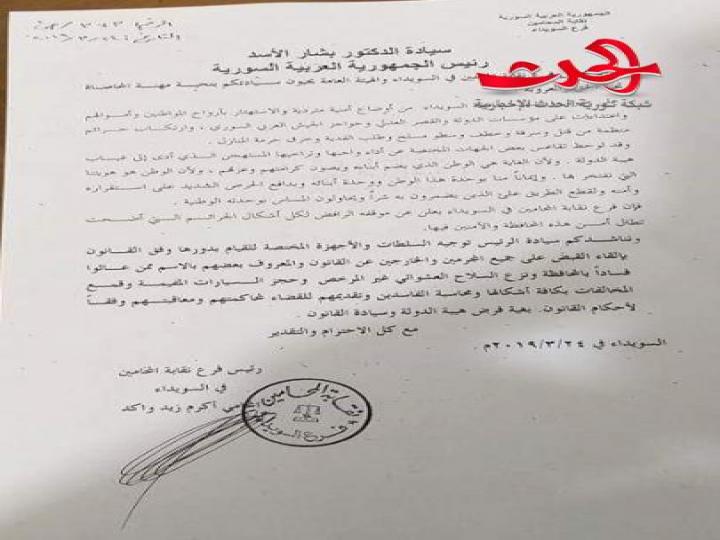 الجمهورية العربية السورية
نقابة المحامين
فرع السويداء
سيادة الدكتور بشار الأسد
رئيس الجمهورية العربية السورية
الحدث
في السويداء والهيئة العامة يحيون سيادتكم بتحية مهنة المحاماة
العروبة
شبكة سورية الحدث الإخبارية
السويداء من أوضاع أمنية متردية والاستهتار بأرواح المواطنين وأموالهم
واعتداءات على مؤسسات الدولة والقصر العدلي وحواجز الجيش العربي السوري ، وارتكاب جرائم
منظمة من قتل وسرقة وخطف وسطو مسلح وطلب الفدية وخرق حرمة المنازل .
وقد لوحظ تقاعس بعض الجهات المختصة عن أداء واجبها وتراخيها المستهجن الذي أدى إلى غياب
هيبة الدولة . ولأن الغاية هي الوطن الذي يضم أبنائه ويصون كرامتهم وعزهم ، ولأن الوطن هو هويتنا
التي نفتخر بها . وإيماناً منا بوحدة هذا الوطن ووحدة أبنائه وبدافع الحرص الشديد على استقراره
وأمنه ولقطع الطريق على الذين يضمرون به شراً ويحاولون المساس بوحدته الوطنية .
فإن فرع نقابة المحامين في السويداء يعلن عن موقفه الرافض لكل أشكال الجرائم التي أضحت
تطال أمن هذه المحافظة والآمنين فيها.
ونناشدكم سيادة الرئيس توجيه السلطات والأجهزة المختصة للقيام بدورها وفق القانون
بإلقاء القبض على جميع المجرمين والخارجين عن القانون والمعروف بعضهم بالاسم ممن عاثوا
فساداً بالمحافظة ونزع السلاح العشوائي غير المرخص وحجز السيارات المفيمة وقمع
المخالفات بكافة أشكالها ومحاسبة الفاسدين وتقديمهم للقضاء لمحاكمتهم ومعاقبتهم وفقاً
لأحكام القانون. بغية فرض هيبة الدولة وسيادة القانون .
مع كل الاحترام والتقدير
السويداء في ٢٠١٩/٣/٢٤م.
رئيس فرع نقابة المحامين
في السويداء
المحامي أكرم زيد واكد
نقابة المحامين
فرع السويداء